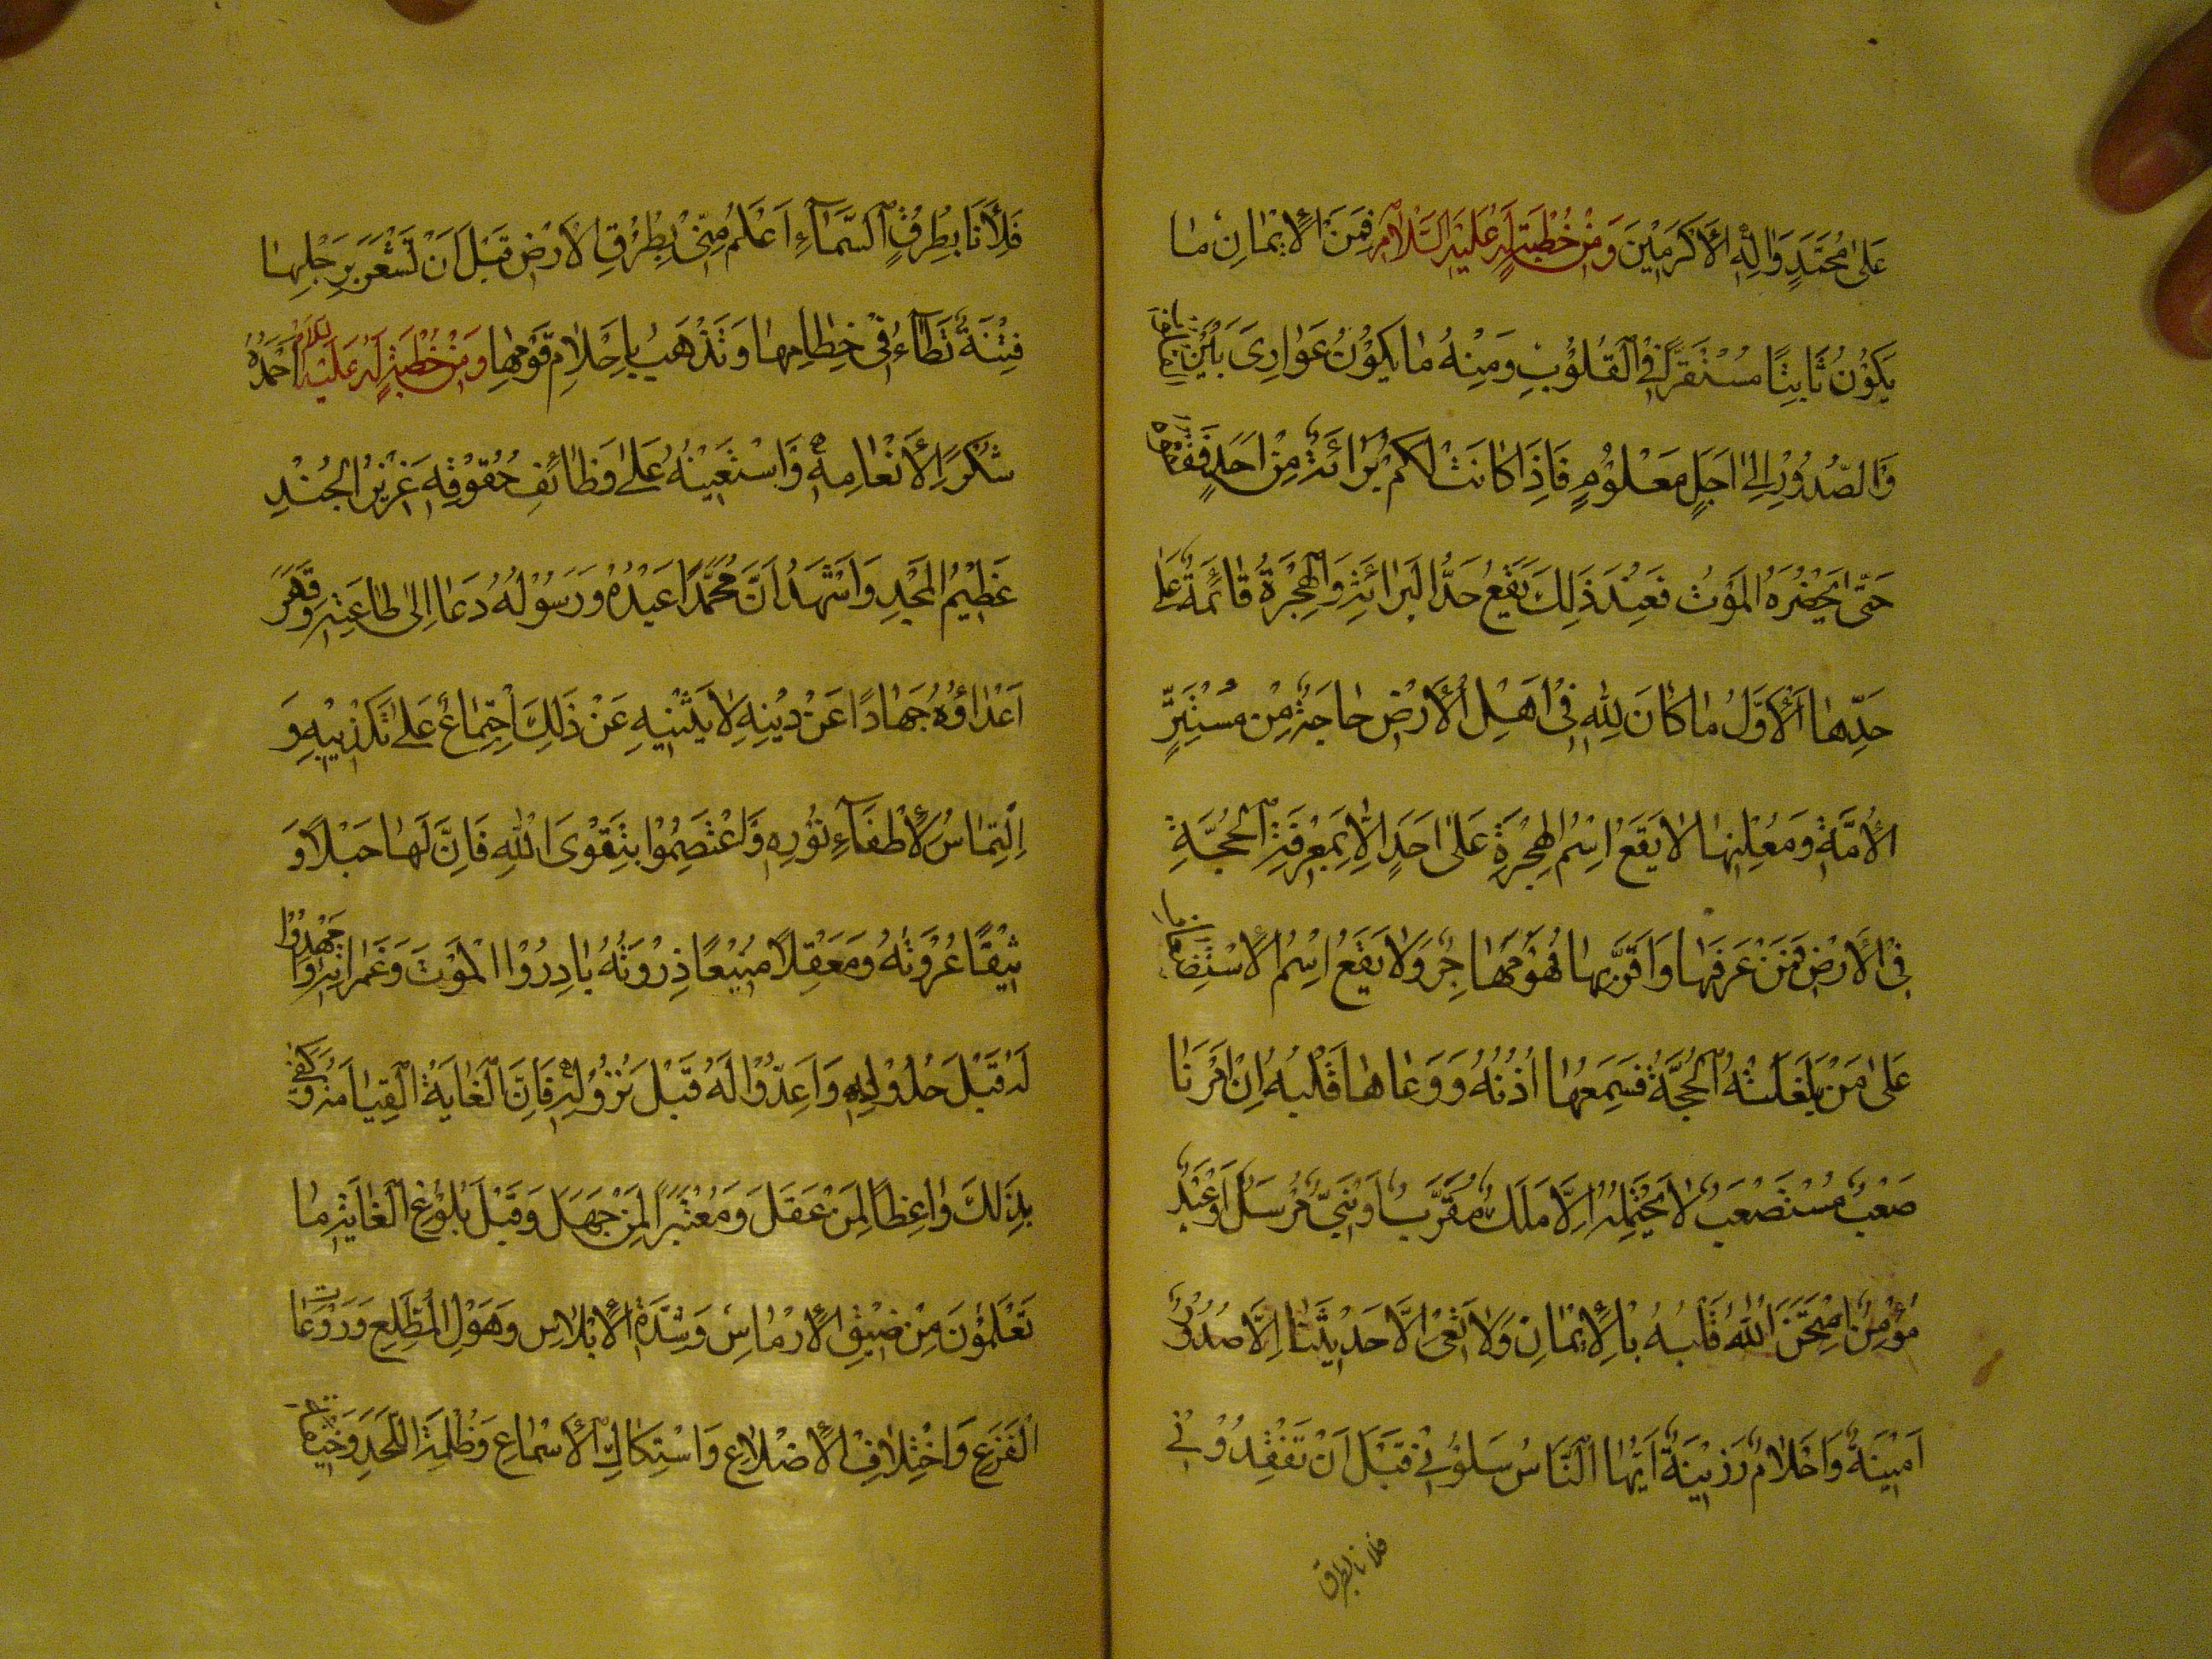 عَلیٰ مُحَمَّدٍ وَاٰلِهِ الْاَكْرَمِیْنَ وَمِنْ خُطْبَةٍ لَهُ عَلَیْهِ السَّلَامُ فَمِنَ الْاِیْمَانِ مَا
یَكُوْنُ ثَابِتًا مُسْتَقِرًّا فِی الْقُلُوْبِ وَمِنْهُ مَا یَكُوْنُ عَوَارِیَ بَیْنَ
وَالصُّدُوْرِ اِلیٰ اَجَلٍ مَعْلُوْمٍ فَاِذَا كَانَتْ لَكُمْ بَرَائَةٌ مِنْ اَحَدٍ فَقِفُوْهُ
حَتّیٰ یَحْضُرَهُ الْمَوْتُ فَعِنْدَ ذٰلِكَ یَقَعُ حَدُّ الْبَرَائَةِ وَالْهِجْرَةُ قَائِمَةٌ عَلیٰ
حَدِّهَا الْاَوَّلِ مَا كَانَ لِلّٰهِ فِیْ اَهْلِ الْاَرْضِ حَاجَةٌ مِنْ مُسْتَسِرِّ
الْاُمَّةِ وَمُعْلِنِهَا لَا یَقَعُ اسْمُ الْهِجْرَةِ عَلیٰ اَحَدٍ اِلَّا بِمَعْرِفَةِ الْحُجَّةِ
فِی الْاَرْضِ فَمَنْ عَرَفَهَا وَاَقَرَّ بِهَا فَهُوَ مُهَاجِرٌ وَلَا یَقَعُ اسْمُ الْاِسْتِضْعَافِ
عَلیٰ مَنْ بَلَغَتْهُ الْحُجَّةُ فَسَمِعَهَا اُذُنُهُ وَوَعَاهَا قَلْبُهُ اِنَّ اَمْرَنَا
صَعْبٌ مُسْتَصْعَبٌ لَا یَحْتَمِلُهُ اِلَّا مَلَكٌ مُقَرَّبٌ اَوْ نَبِیٌّ مُرْسَلٌ اَوْ عَبْدٌ
مُؤْمِنٌ امْتَحَنَ اللّٰهُ قَلْبَهُ بِالْاِیْمَانِ وَلَا تَعِیْ اِلَّا حَدِیْثَنَا اِلَّا صُدُوْرٌ
اَمِیْنَةٌ وَاَحْلَامٌ رَزِیْنَةٌ اَیُّهَا النَّاسُ سَلُوْنِیْ قَبْلَ اَنْ تَفْقِدُوْنِیْ
فلانا بطرق
فَلَاَنَا بِطُرُقِ السَّمَآءِ اَعْلَمُ مِنِّیْ بِطُرُقِ الْاَرْضِ قَبْلَ اَنْ تَشْغَرَ بِرِجْلِهَا
فِتْنَةٌ تَطَاءُ فِیْ خِطَامِهَا وَتَذْهَبُ بِاَحْلَامِ قَوْمِهَا وَمِنْ خُطْبَةٍ لَهُ عَلَیْهِ السَّلَامُ اَحْمَدُهُ
شُكْرًا لِاَنْعَامِهِ وَاَسْتَعِیْنُهُ عَلیٰ وَظَائِفِ حُقُوْقِهِ عَزِیْزُ الْجُنْدِ
عَظِیْمُ الْمَجْدِ وَاَشْهَدُ اَنَّ مُحَمَّدًا عَبْدُهُ وَرَسُوْلُهُ دَعَا اِلیٰ طَاعَتِهِ وَقَهَرَ
اَعْدَاؤُهُ جِهَادًا عَنْ دِیْنِهِ لَا یَثْنِیْهِ عَنْ ذٰلِكَ اجْتِمَاعٌ عَلیٰ تَكْذِیْبِهِ وَ
اِلْتِمَاسٌ لِاِطْفَآءِ نُوْرِهِ وَاعْتَصِمُوْا بِتَقْوَی اللّٰهِ فَاِنَّ لَهَا حَبْلًا وَ
ثِیْقًا عُرْوَتُهُ وَمَعْقِلًا مَنِیْعًا ذِرْوَتُهُ بَادِرُوْا الْمَوْتَ وَغَمَرَاتِهِ وَامْهَدُوْا
لَهُ قَبْلَ حُلُوْلِهِ وَاَعِدُّوْا لَهُ قَبْلَ نُزُوْلِهِ فَاِنَّ الْغَایَةَ الْقِیَامَةُ وَكَفیٰ
بِذٰلِكَ وَاعِظًا لِمَنْ عَقَلَ وَمُعْتَبَرًا لِمَنْ جَهِلَ وَقَبْلَ بُلُوْغِ الْغَایَةِ مَا
تَعْلَمُوْنَ مِنْ ضِیْقِ الْاَرْمَاسِ وَشِدَّةِ الْاِبْلَاسِ وَهَوْلِ الْمُطَّلَعِ وَرَوْعَاتِ
الْفَزَعِ وَاخْتِلَافِ الْاَضْلَاعِ وَاسْتِكَاكِ الْاَسْمَاعِ وَظُلْمَةِ اللَّحْدِ وَخِیْفَةِ